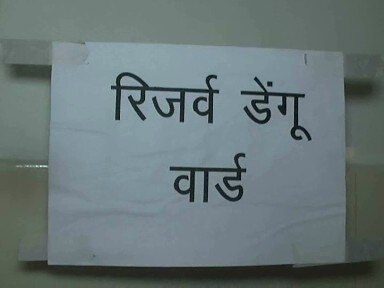 रिजर्व डेंगू
वार्ड